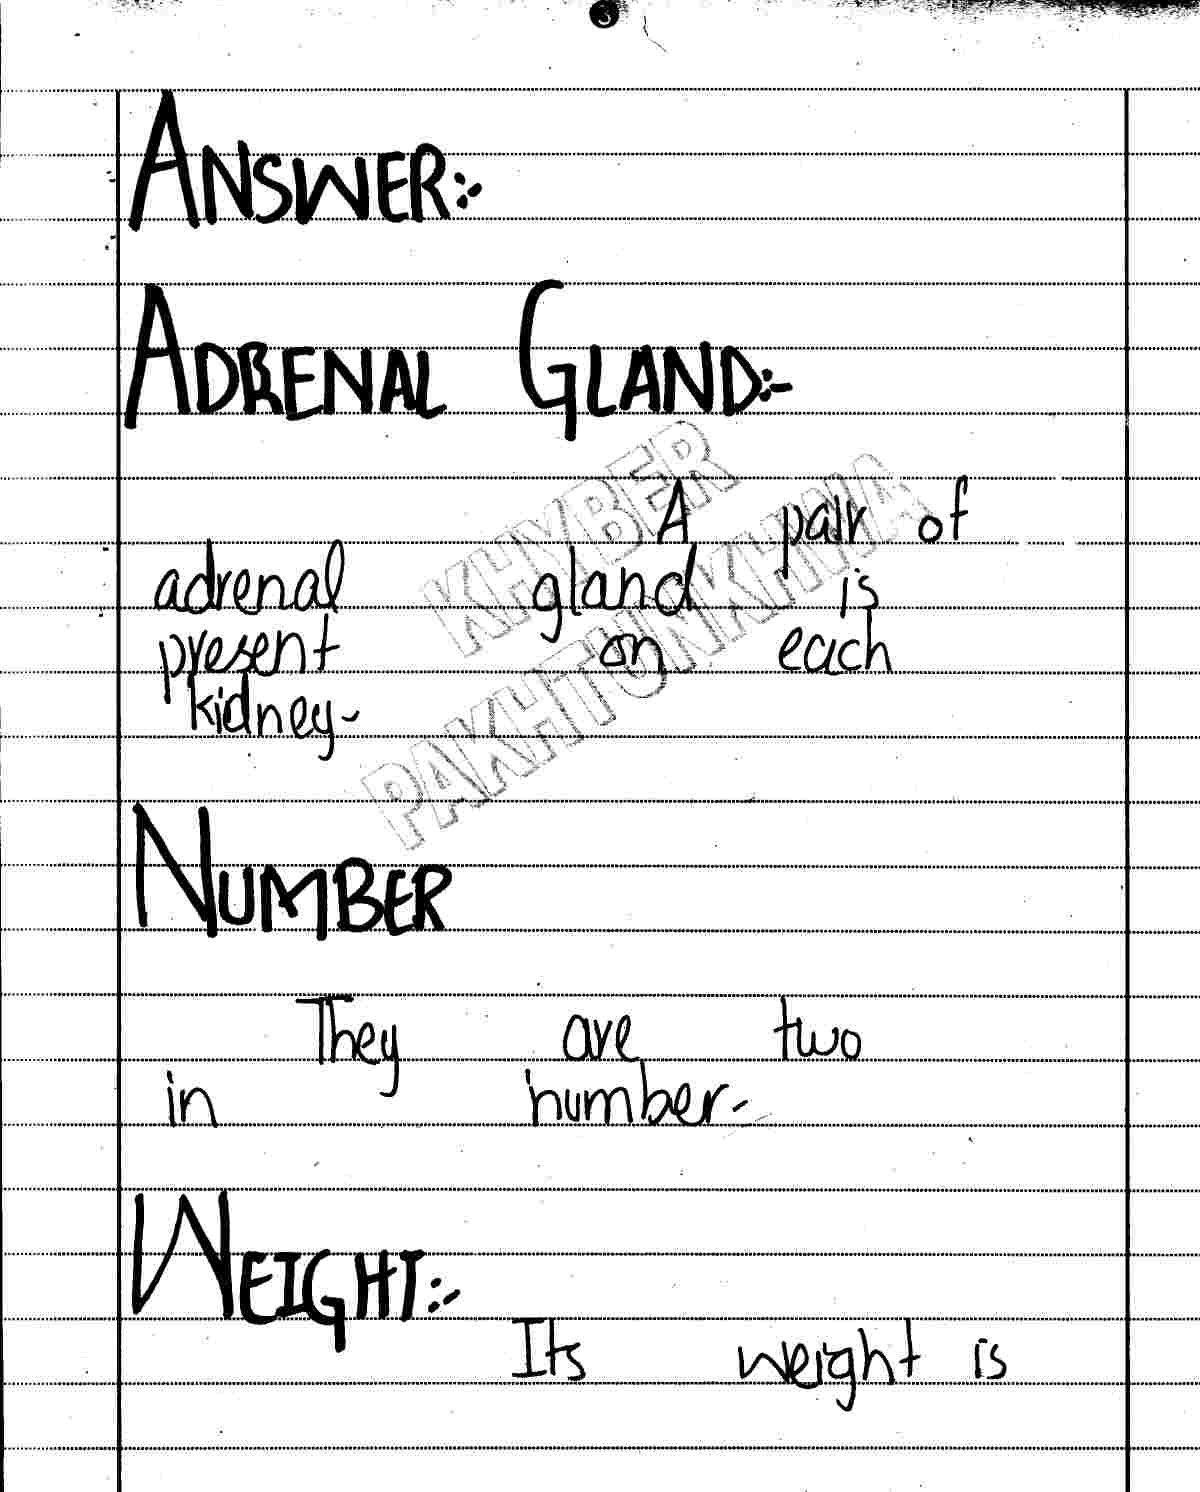 3
ANSWER:-
ADRENAL GLAND:-
A pair of
adrenal gland is
present on each
kidney-
KHYBER
PAKHTUNKHWA
NUMBER
They are two
in number-
WEIGHT:-
Its weight is